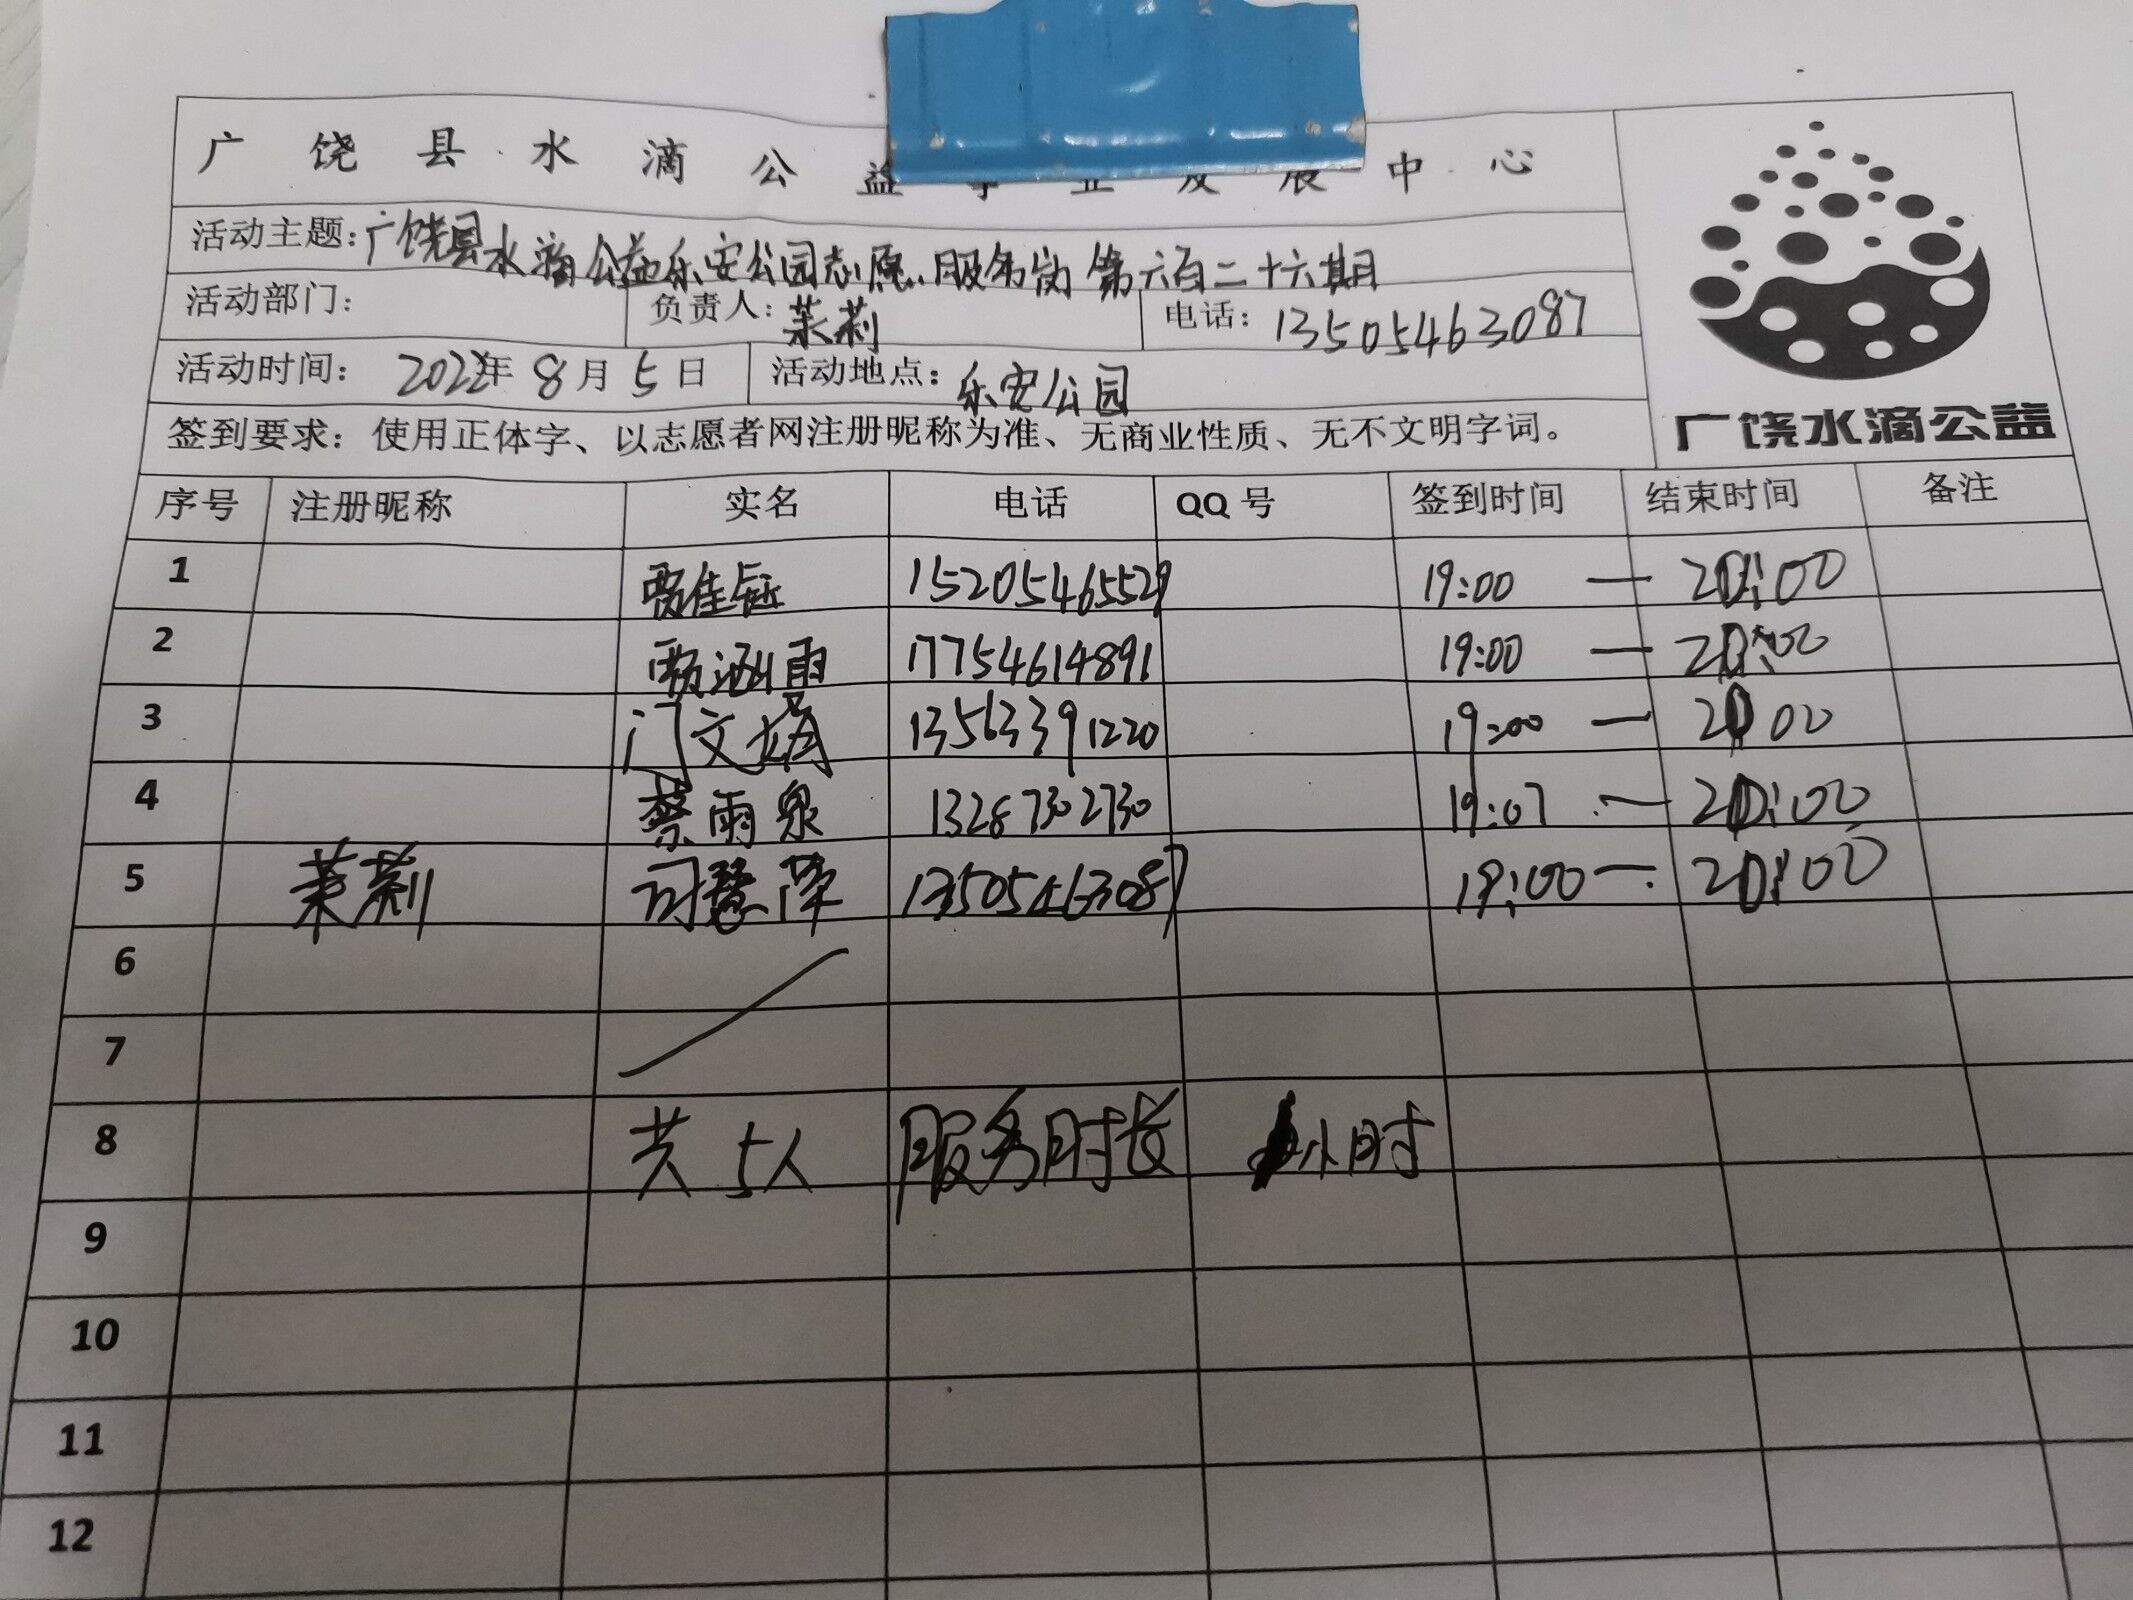 广饶县水滴公益事业发展中心
活动主题：广饶县水滴公益乐安公园志愿服务岗第六百二十六期
活动部门： 负责人：茉莉 电话：13505463087
活动时间： 2022年8月5日 活动地点：乐安公园
签到要求：使用正体字、以志愿者网注册昵称为准、无商业性质、无不文明字词。
广饶水滴公益
序号 注册昵称 实名 电话 QQ号 签到时间 结束时间 备注
1 贾佳钰 15205465529 19:00 — 20:00
2 贾涵雨 17754614891 19:00 — 20:00
3 门文娟 13563391220 19:00 — 20 00
4 蔡雨泉 13287302730 19:07 — 20:00
5 茉莉 13505463087 19:00 — 20:00
6
7
8 共5人 服务时长 小时
9
10
11
12